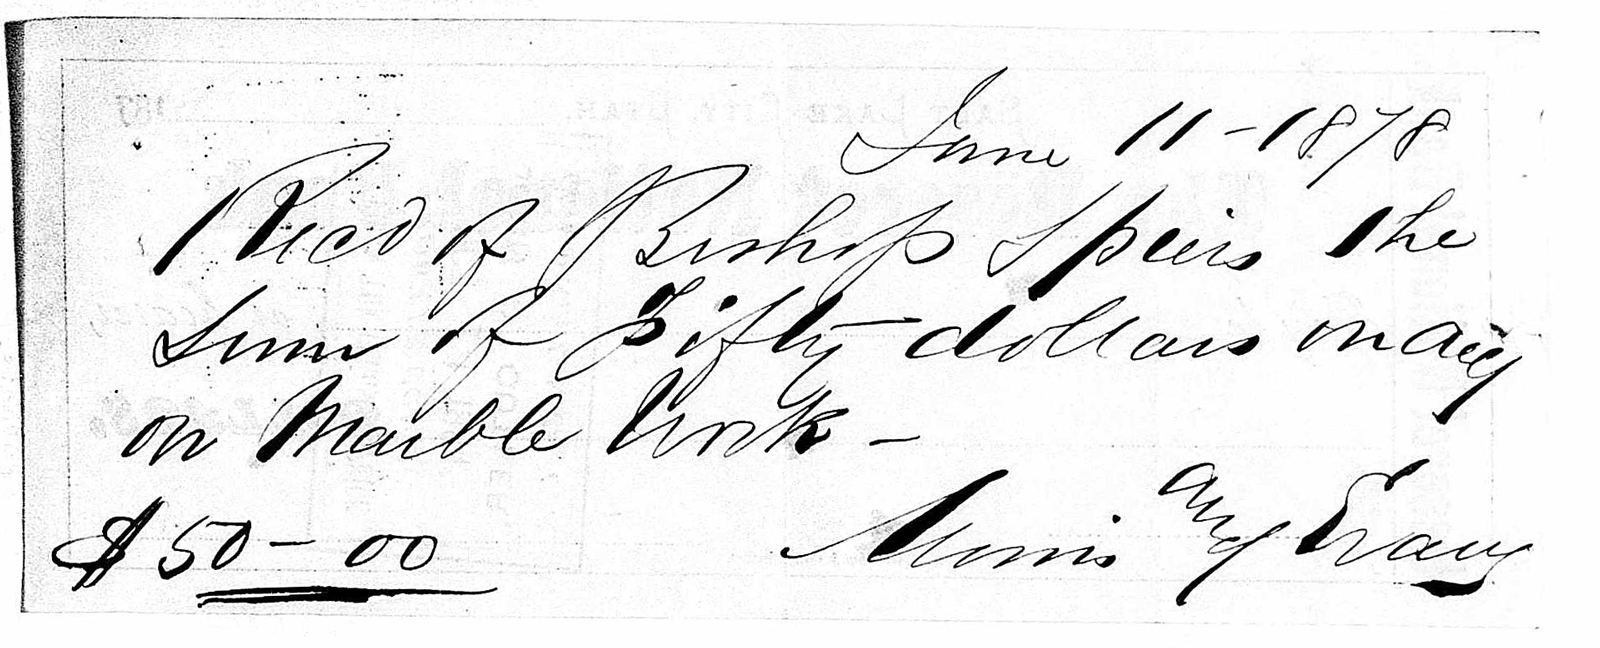 June 11-1878
Recd of Bishop Speirs the
Sum of Fifty dollars on acc
on Marble Work -
$50-00
Morris and Evans